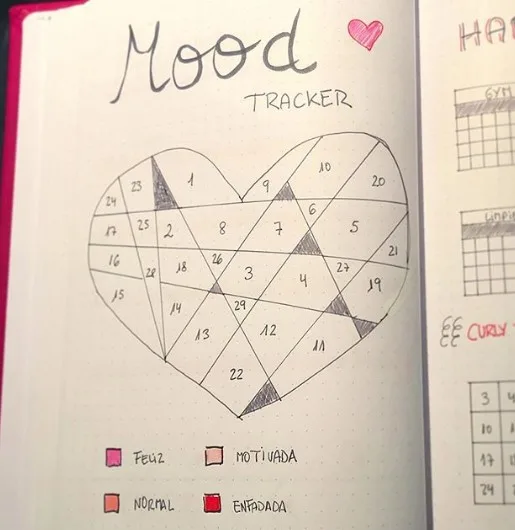 Mood
TRACKER
1 9 10 20
23
24
17 25 2 8 7 6 5
16 28 18 26 3 4 27 21
15 14 29 19
13 12 11
22
FELIZ MOTIVADA
NORMAL ENFADADA
GYM
CURLY
3
10
17
24